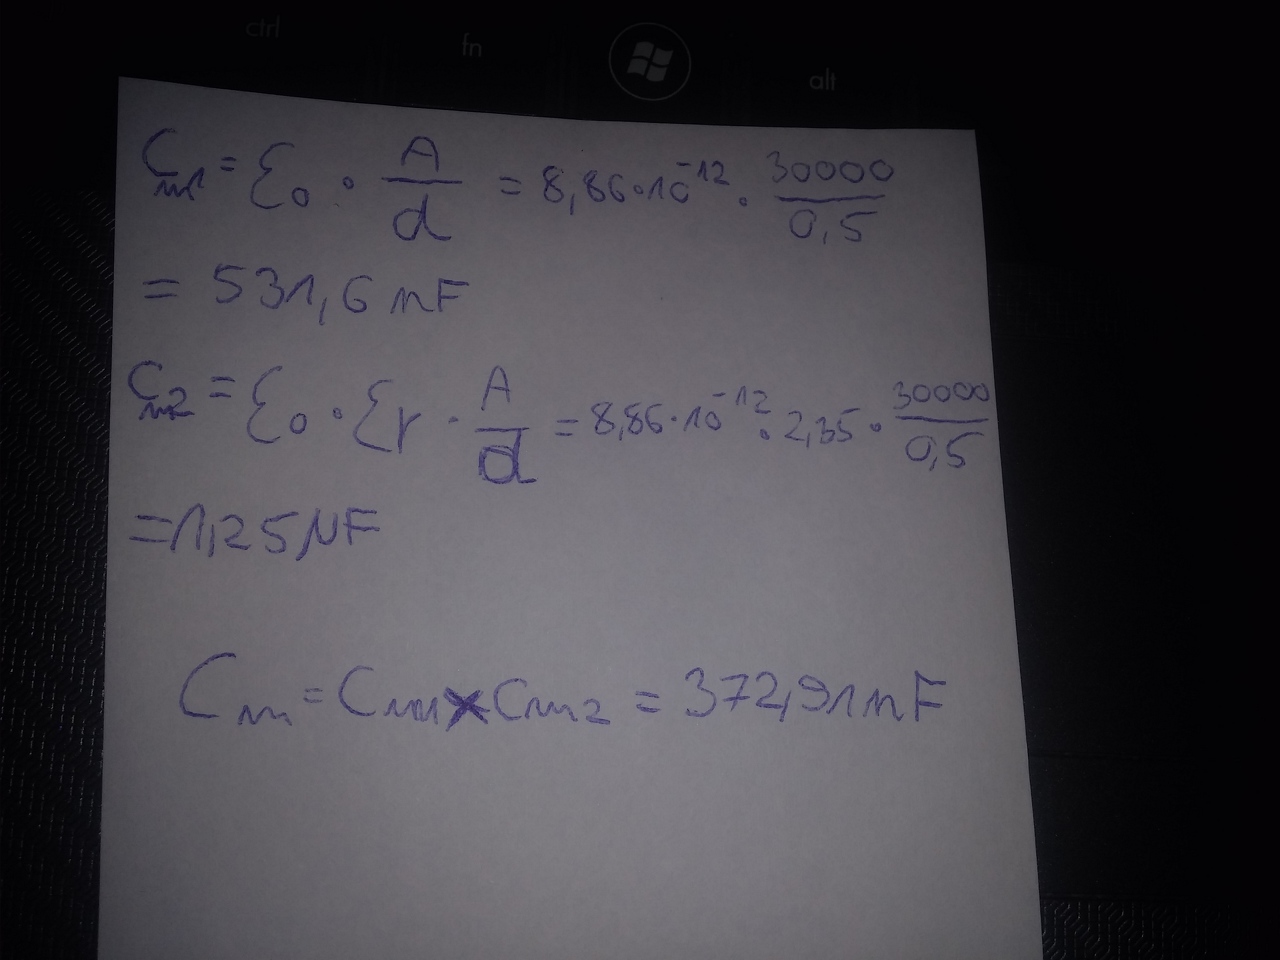 ctrl fn alt
Cm1 = ε0 · A/d = 8,86·10^-12 · 30000/0,5
= 531,6 nF
Cm2 = ε0 · εr · A/d = 8,86·10^-12 · 2,35 · 30000/0,5
= 1,25 µF
Cm = Cm1 × Cm2 = 372,91 nF